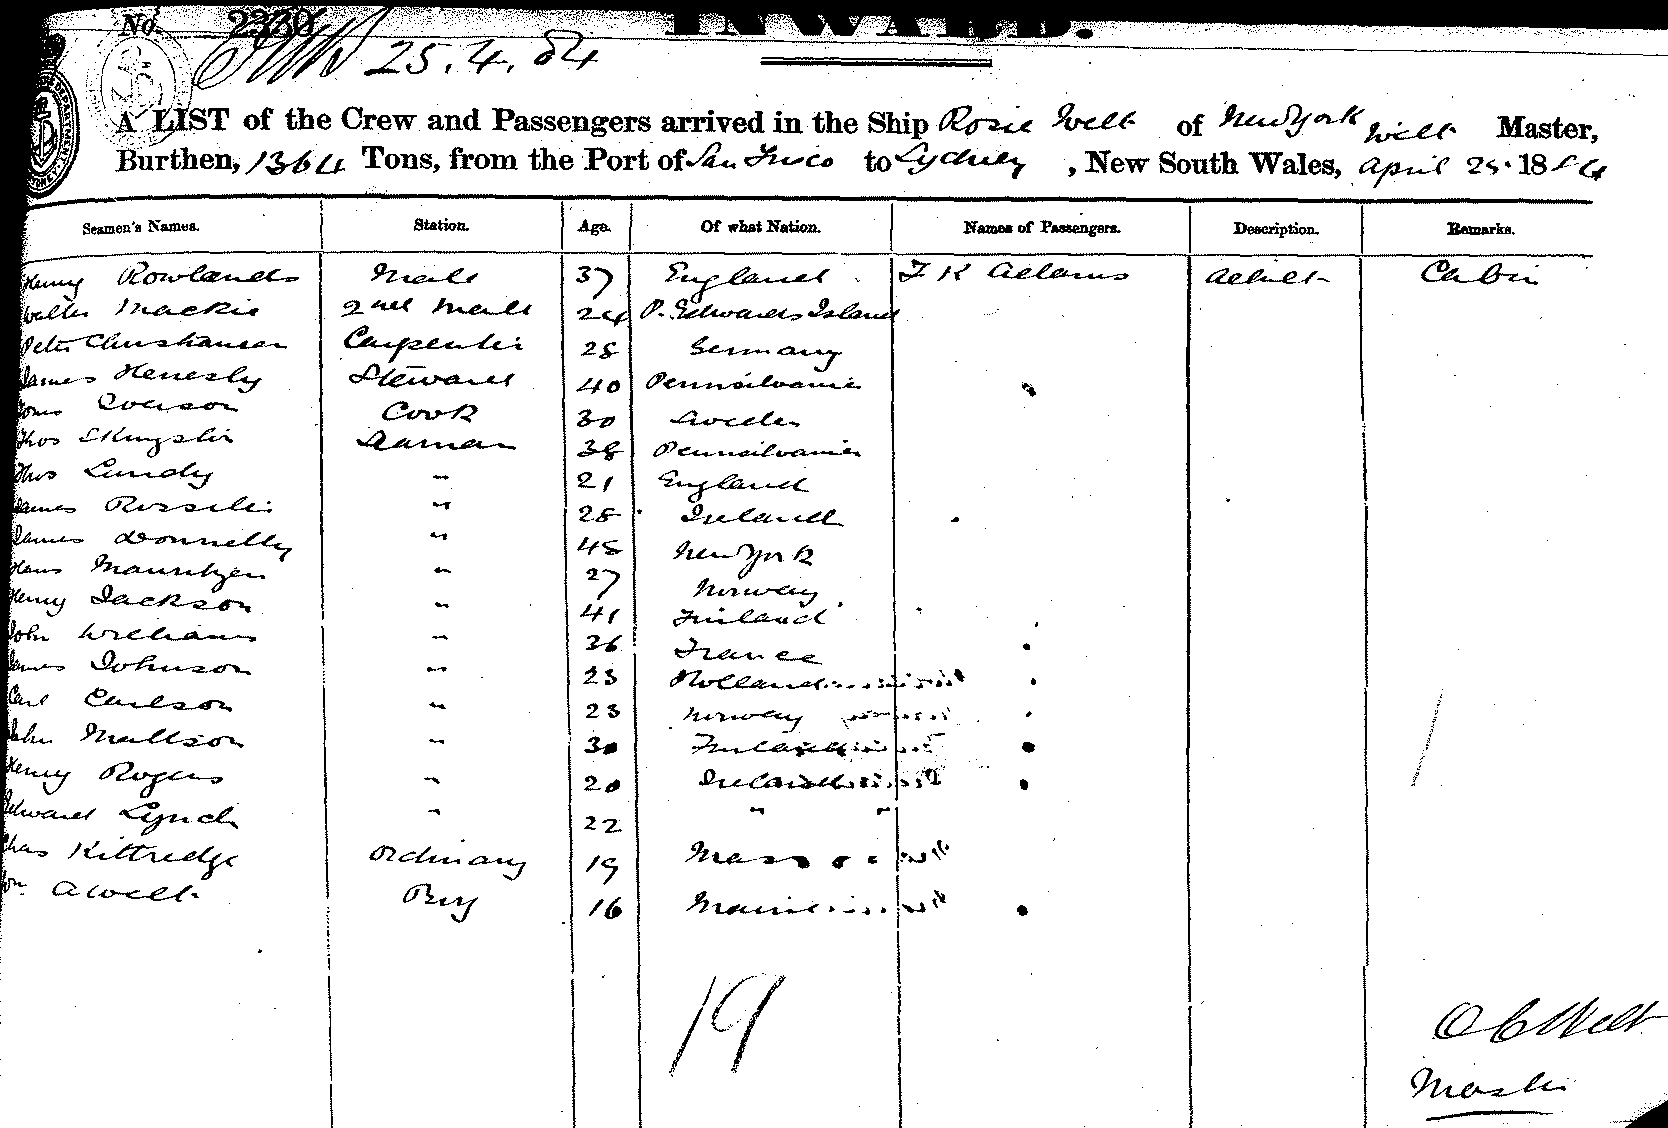 No. 2330 INWARD.
25.4.84
A LIST of the Crew and Passengers arrived in the Ship Rosie Welt of New York Welt Master,
Burthen, 1364 Tons, from the Port of San Frisco to Sydney, New South Wales, April 25. 1884
Seamen's Names. Station. Age. Of what Nation. Names of Passengers. Description. Remarks.
Henry Rowlands Mate 37 England F K Adams Adult Cabin
Walter Mackie 2nd Mate 24 P. Edwards Island
Peter Christiansen Carpenter 28 Germany
James Henesly Steward 40 Pennsilvania
Iverson Cook 30 Sweden
Thos Seaman 38 Pennsilvania
Thos Lundy " 21 England
James " 28 Ireland
James Donnelly " 48 New York
Hans Mauritzen " 27 Norway
Henry Jackson " 41 Finland
John Williams " 36 France
James Johnson " 23 Holland
Carl Carlson " 23 Norway
John Mattson " 30 Finland
Henry Rogers " 20 Ireland
Edward Lynch " 22 " "
Chas Kittredge Ordinary 19 Mass
Wm. A Welt Boy 16 Maine
19
O C Welt
Master